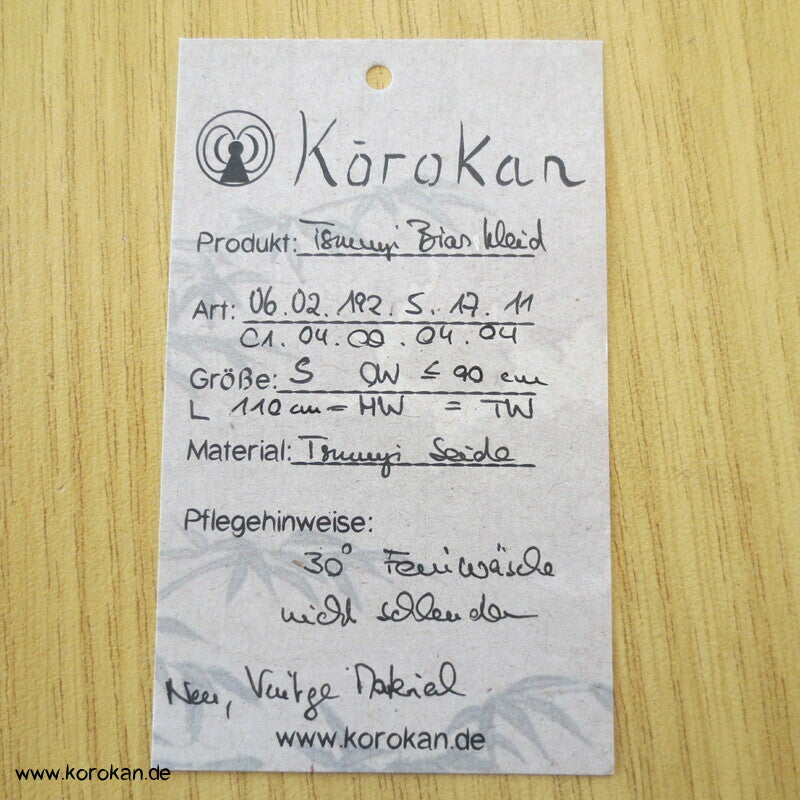 Kōrokan
Produkt: Tsumugi Bias Kleid
Art: 06.02.192.S.17.11
C1.04.00.04.04
Größe: S OW ≤ 90 cm
L 110 cm = HW = TW
Material: Tsumugi Seide
Pflegehinweise:
30° Feinwäsche
nicht schleudern
Neu, Vintage Material
www.korokan.de
www.korokan.de